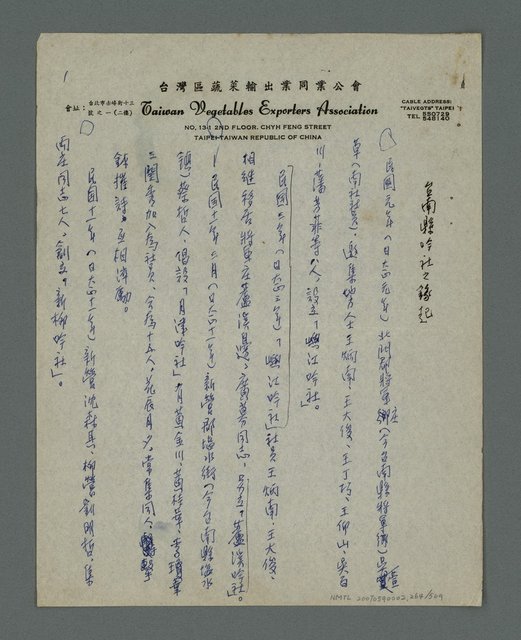 台灣區蔬菜輸出業同業公會
會址：台北市赤峰街十三號之一(二樓)
Taiwan Vegetables Exporters Association
NO. 13-1 2ND FLOOR, CHYH FENG STREET
TAIPEI, TAIWAN REPUBLIC OF CHINA
CABLE ADDRESS:
"TAIVEGTS" TAIPEI
TEL
台南縣吟社之緣起
民國元年（日大正元年）北門郡將軍庄（今台南縣將軍鄉）吳萱
草（南社社員），邀集地方人士王炳南、王大俊、王丁巧、王仰山、吳
川、等八人，設立「嶼江吟社」。
民國三年（日大正三年），「嶼江吟社」社員王炳南、王大俊、
相繼移居將軍庄蘆溪邊，廣募同志，另立「蘆溪吟社」。
民國十一年三月（日大正十一年）新營郡塩水街（今台南縣塩水
鎮）蔡哲人，倡設「月津吟社」，有黃金川、黃
三閨秀加入為社員，合為十五人，花辰月夕，常集同人，
鉢催詩，互相淬勵。
民國十一年（日大正十一年）新營沈森其、柳營劉明哲集
兩庄同志七人，創立「新柳吟社」。
NMTL 20070590002, 264/509